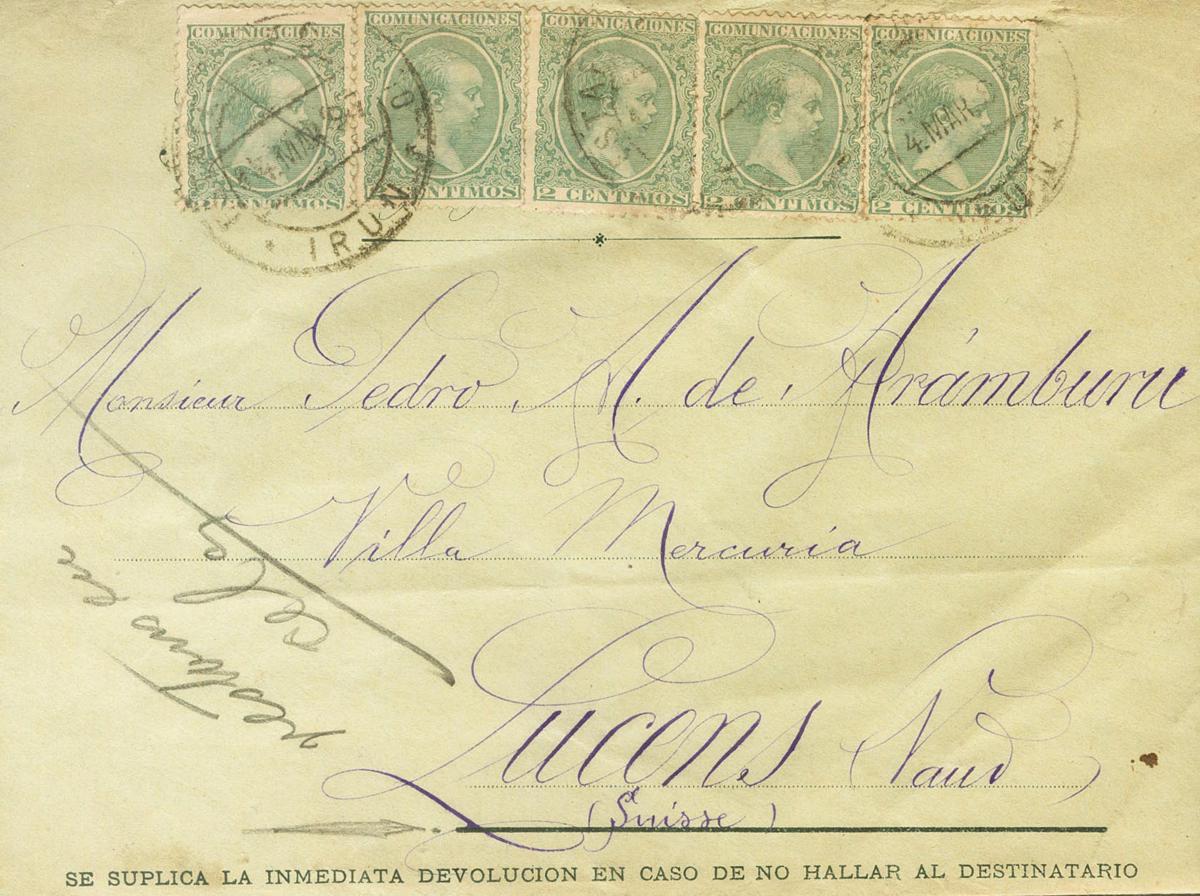 COMUNICACIONES COMUNICACIONES COMUNICACIONES COMUNICACIONES COMUNICACIONES
4 MAR 4.MAR
2 CENTIMOS 2 CENTIMOS 2 CENTIMOS 2 CENTIMOS 2 CENTIMOS
IRUN
Monsieur Pedro M. de Arámburu
Villa Mercuria
Lucens Vaud
(Suisse)
SE SUPLICA LA INMEDIATA DEVOLUCION EN CASO DE NO HALLAR AL DESTINATARIO